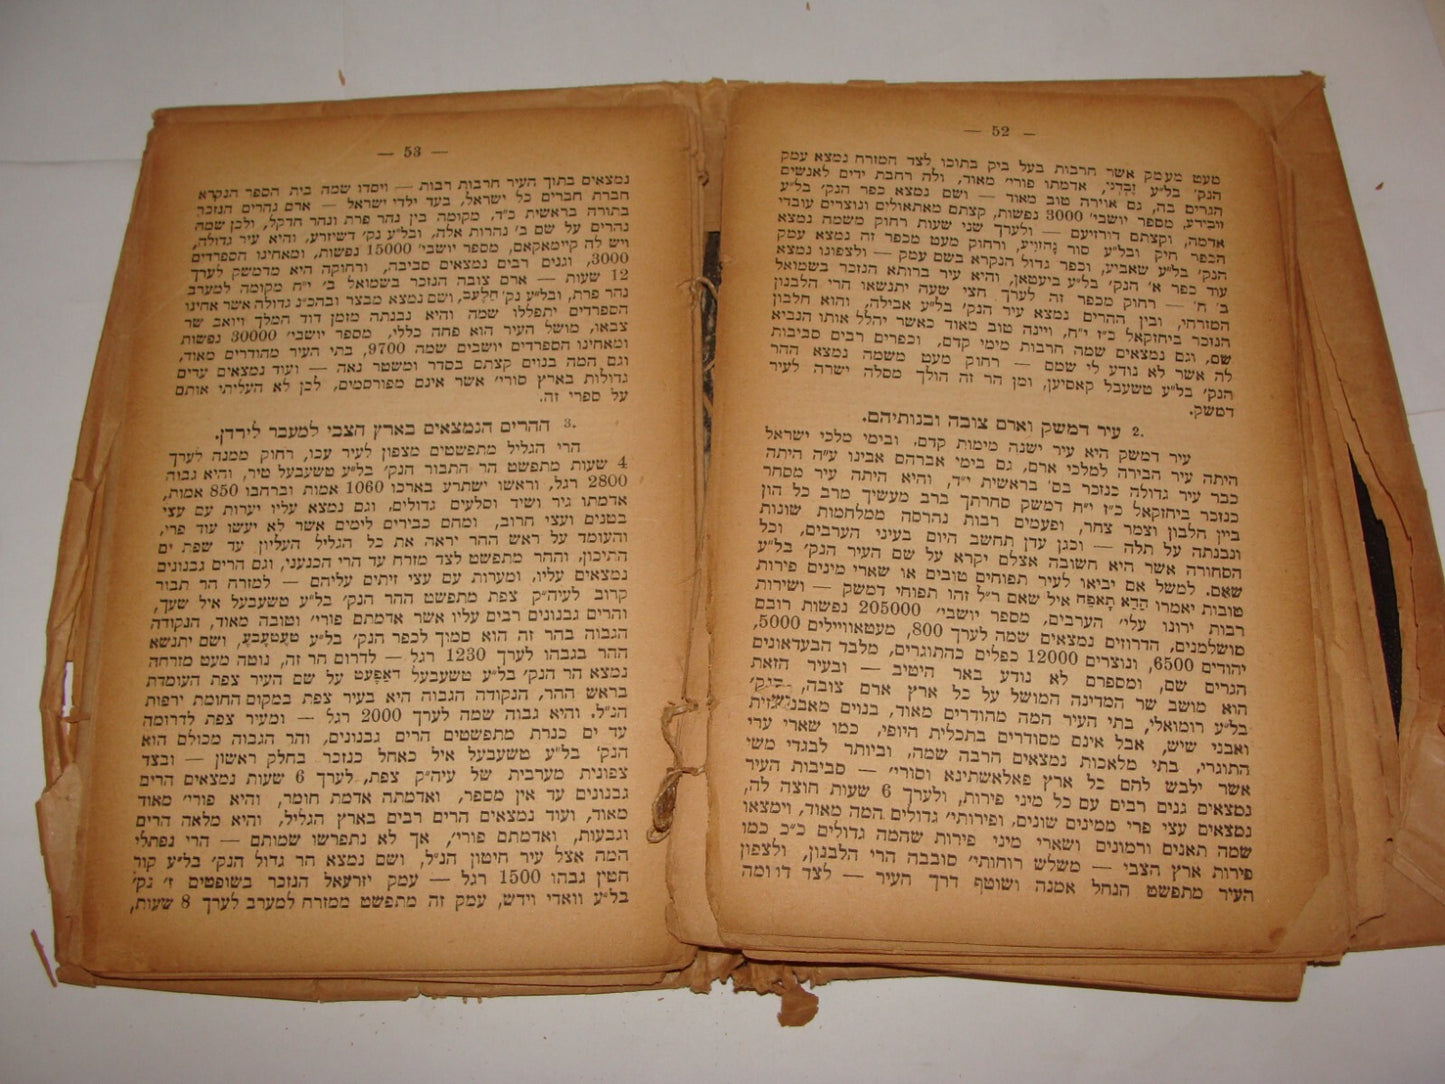 — 52 —
מעט מעמק אשר חרבות בעל ביק בתוכו לצד המזרח נמצא עמק
הנק׳ בל״ע זַבְּדני, אדמתו פורי׳ מאוד, ולה רחבת ידים לאנשים
הגרים בה, גם אוירה טוב מאוד — ושם נמצא כפר הנק׳ בל״ע
זיבידע, מספר יושבי׳ 3000 נפשות, קצתם מאתאולים ונוצרים עובדי
אדמה, וקצתם דורזיעם — ולערך שני שעות רחוק משמה נמצא
הכפר חיק ובל״ע סור נָהוְיע, ורחוק מעט מכפר זה נמצא עמק
הנק׳ בל״ע שאביע, וכפר גדול הנקרא בשם עמק — ולצפונו נמצא
עוד כפר א׳ הנק׳ בל״ע ביעטאן, והיא עיר ברותא הנזכר בשמואל
ב׳ ח׳ — רחוק מכפר זה לערך חצי שעה יתנשאו הרי הלבנון
המזרחי, ובין ההרים נמצא עיר הנק׳ בל״ע אבילה, והוא חלבון
הנזכר ביחזקאל כ״ז י״ח, ויינה טוב מאוד כאשר יהלל אותו הנביא
שם, וגם נמצאים שמה חרבות מימי קדם, וכפרים רבים סביבות
לה אשר לא נודע לי שמם — רחוק מעט משמה נמצא ההר
הנק׳ בל״ע טשעבל קאסיען, ומן הר זה הולך מסלה ישרה לעיר
דמשק.
2. עיר דמשק וארם צובה ובנותיהם.
עיר דמשק היא עיר ישנה מימות קדם, ובימי מלכי ישראל
היתה עיר הבירה למלכי ארם, גם בימי אברהם אבינו ע״ה היתה
כבר עיר גדולה כנזכר בס׳ בראשית י״ד, והיא היתה עיר מסחר
כנזכר ביחזקאל כ״ז י״ח דמשק סחרתך ברב מעשיך מרב כל הון
ביין חלבון וצמר צחר, ופעמים רבות נהרסה ממלחמות שונות
ונבנתה על תלה — וכגן עדן תחשב היום בעיני הערבים, וכל
הסחורה אשר היא חשובה אצלם יקרא על שם העיר הנק׳ בל״ע
שאם. למשל אם יביאו לעיר תפוחים טובים או שארי מינים פירות
טובות יאמרו הַדַא תָאפֵּח איל שאם ר״ל זהו תפוחי דמשק — ושירות
רבות ירונו עלי׳ הערבים, מספר יושבי׳ 205000 נפשות רובם
מוסלמנים, הדרוזים נמצאים שמה לערך 800, מעטאוויילים 5000,
יהודים 6500, ונוצרים 12000 כפלים כהתוגרים, מלבד הבעדאונים
הגרים שם, ומספרם לא נודע באר היטיב — ובעיר הזאת
הוא מושב שר המדינה המושל על כל ארץ ארם צובה,
בל״ע רומואלי, בתי העיר המה מהודרים מאוד, בנוים
ואבני שיש, אבל אינם מסודרים בתכלית היופי, כמו שארי ערי
התוגרי, בתי מלאכות נמצאים הרבה שמה, וביותר לבגדי משי
אשר ילבש להם כל ארץ פאלאשתינא וסורי׳ — סביבות העיר
נמצאים גנים רבים עם כל מיני פירות, ולערך 6 שעות חוצה לה,
נמצאים עצי פרי ממינים שונים, ופירותי׳ גדולים המה מאוד, וימצאו
שמה תאנים ורמונים ושארי מיני פירות שהמה גדולים כ״כ כמו
פירות ארץ הצבי — משלש רוחותי׳ סובבה הרי הלבנון, ולצפון
העיר מתפשט הנחל אמנה ושוטף דרך העיר — לצד דרומה
— 53 —
נמצאים בתוך העיר חרבות רבות — ויסדו שמה בית הספר הנקרא
חברת חברים כל ישראל, בעד ילדי ישראל — ארם נהרים הנזכר
בתורה בראשית כ״ד, מקומה בין נהר פרת ונהר חדקל, ולכן שמה
נהרים על שם ב׳ נהרות אלה, ובל״ע נק׳ דשיזרע, והיא עיר גדולה,
ויש לה קיימאקאם, מספר יושבי׳ 15000 נפשות, ומאחינו הספרדים
3000, וגנים רבים נמצאים סביבה, ורחוקה היא מדמשק לערך
12 שעות — ארם צובה הנזכר בשמואל ב׳ י״ח מקומה למערב
נהר פרת, ובל״ע נק׳ חַלַעבּ, ושם נמצא מבצר ובהכ״נ גדולה אשר אחינו
הספרדים יתפללו שמה והיא נבנתה מזמן דוד המלך ויואב שר
צבאו, מושל העיר הוא פחה כללי, מספר יושבי׳ 30000 נפשות
ומאחינו הספרדים יושבים שמה 9700, בתי העיר מהודרים מאוד,
וגם המה בנוים קצתם בסדר ומשטר נאה — ועוד נמצאים ערים
גדולות בארץ סורי׳ אשר אינם מפורסמים, לכן לא העליתי אותם
על ספרי זה.
3. ההרים הנמצאים בארץ הצבי למעבר לירדן.
הרי הגליל מתפשטים מצפון לעיר עכו, רחוק ממנה לערך
4 שעות מתפשט הר התבור הנק׳ בל״ע טשעבעל טיר, והיא גבוה
2800 רגל, וראשו ישתרע בארכו 1060 אמות וברחבו 850 אמות,
אדמתו גיר ושיד וסלעים גדולים, וגם נמצא עליו יערות עם עצי
בטנים ועצי חרוב, ומהם כבירים לימים אשר לא יעשו עוד פרי,
והעומד על ראש ההר יראה את כל הגליל העליון עד שפת ים
התיכון, וההר מתפשט לצד מזרח עד הרי הכנעני, וגם הרים גבנונים
נמצאים עליו, ומערות עם עצי זיתים עליהם — למזרח הר תבור
קרוב לעיה״ק צפת מתפשט ההר הנק׳ בל״ע טשעבעל איל שעך,
והרים גבנונים רבים עליו אשר אדמתם פורי׳ וטובה מאוד, הנקודה
הגבוה בהר זה הוא סמוך לכפר הנק׳ בל״ע טעטעבע, ושם יתנשא
ההר בגבהו לערך 1230 רגל — לדרום הר זה, נוטה מעט מזרחה
נמצא הר הנק׳ בל״ע טשעבעל דאפָעט על שם העיר צפת העומדת
בראש ההר, הנקודה הגבוה היא בעיר צפת במקום החומת ירפות
הנ״ל. והיא גבוה שמה לערך 2000 רגל — ומעיר צפת לדרומה
עד ים כנרת מתפשטים הרים גבנונים, והר הגבוה מכולם הוא
הנק׳ בל״ע טשעבעל איל כאחל כנזכר בחלק ראשון — ובצד
צפונית מערבית של עיה״ק צפת, לערך 6 שעות נמצאים הרים
גבנונים עד אין מספר, ואדמתה אדמת חומר, והיא פורי׳ מאוד
מאוד, ועוד נמצאים הרים רבים בארץ הגליל, והיא מלאה הרים
וגבעות, ואדמתם פורי׳, אך לא נתפרשו שמותם — הרי נפתלי
המה אצל עיר חיטון הנ״ל, ושם נמצא הר גדול הנק׳ בל״ע קור
חטין גבהו 1500 רגל — עמק יזרעאל הנזכר בשופטים ז׳ נק׳
בל״ע וואדי וידש, עמק זה מתפשט ממזרח למערב לערך 8 שעות,